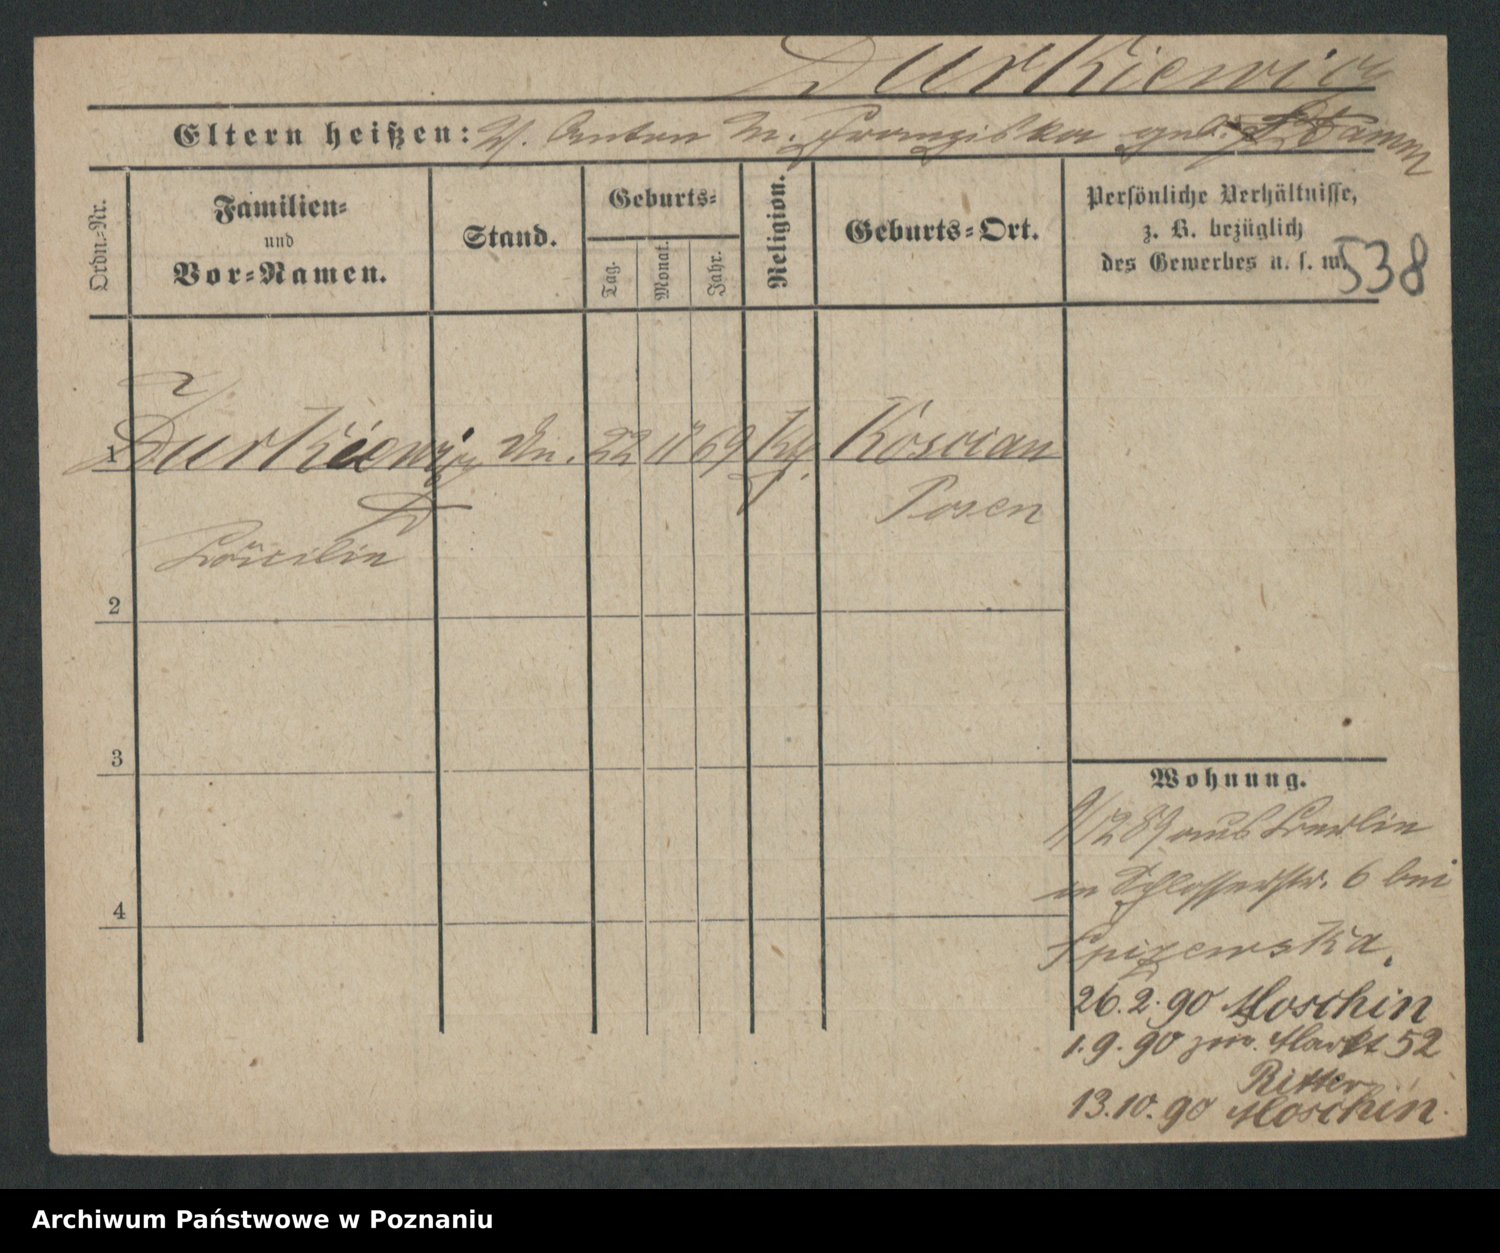 Durkiewicz
Eltern heißen: V. Anton M. Franziska geb. Damm
Ordn.-Nr.
Familien- und Vor-Namen.
Stand.
Geburts-
Tag.
Monat.
Jahr.
Religion.
Geburts-Ort.
Persönliche Verhältnisse,
z. B. bezüglich
des Gewerbes u. s. w.
538
1 Durkiewicz 22 11 69 Kth. Koscian
Posen
Cäcilie
2
3
4
Wohnung.
89 aus Berlin
in Schlosserstr. 6 bei
26.2.90 Moschin
1.9.90 zur. Markt 52
Ritter
13.10.90 Moschin.
Archiwum Państwowe w Poznaniu